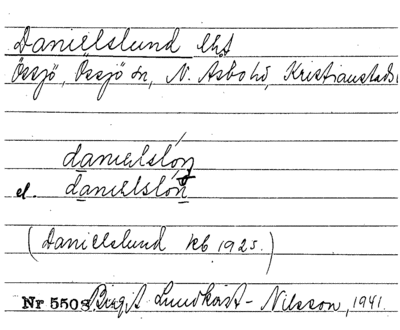 Danielslund lht
Össjö, Össjö sn, N. Åsbo hd, Kristianstads
danielslón
el. danielslón
(Danielslund kb 1925.)
Nr 5508 Birgit Lundkvist-Nilsson, 1941